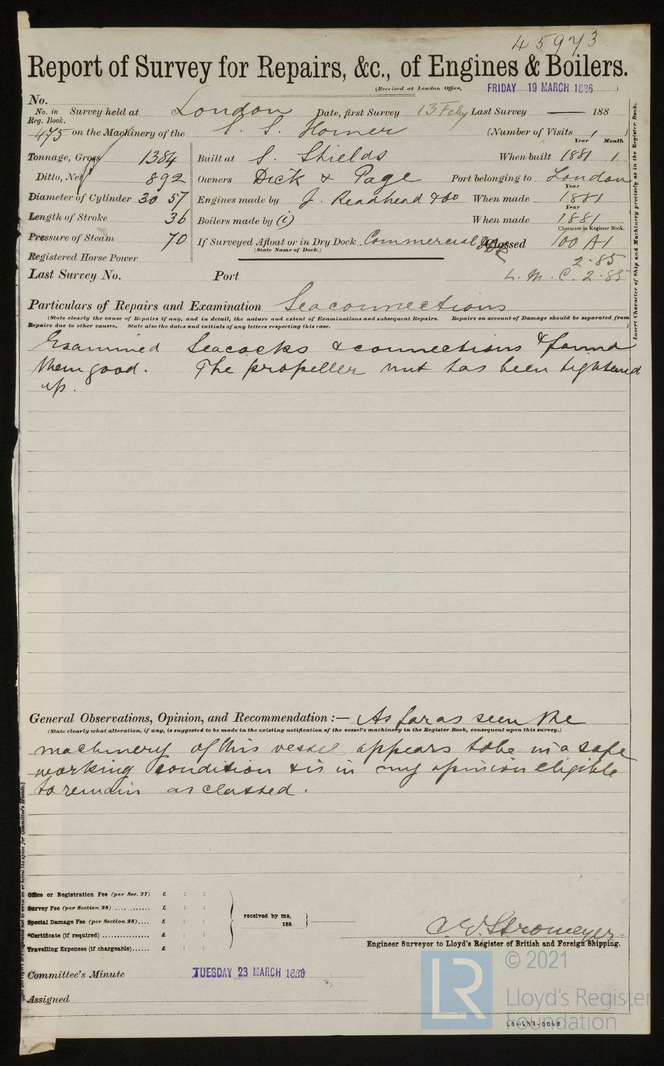 45973
Report of Survey for Repairs, &c., of Engines & Boilers.
(Received at London Office, FRIDAY 19 MARCH 1886
No.
No. in Reg. Book. Survey held at London Date, first Survey 13 Feby Last Survey — 188
475 on the Machinery of the S. S. Horner (Number of Visits 1 )
Tonnage, Gross 1384 Built at S. Shields When built 1881 Year Month 1
Ditto, Net 892 Owners Dick & Page Port belonging to London
Diameter of Cylinder 30 57 Engines made by J. Readhead & Co When made Year 1881
Length of Stroke 36 Boilers made by (i) When made Year 1881
Pressure of Steam 70 If Surveyed Afloat or in Dry Dock Commercial Classed Character in Register Book. 100 A1
(State Name of Dock.)
Registered Horse Power 2.85
Last Survey No. Port L. M. C. 2.85
Insert Character of Ship and Machinery precisely as in the Register Book.
Particulars of Repairs and Examination Seaconnections
(State clearly the cause of Repairs if any, and in detail, the nature and extent of Examinations and subsequent Repairs. Repairs on account of Damage should be separated from
Repairs due to other causes. State also the dates and initials of any letters respecting this case. )
Examined Seacocks & connections & found
them good. The propeller nut has been tightened
up.
General Observations, Opinion, and Recommendation :— As far as seen the
(State clearly what alteration, if any, is suggested to be made in the existing notification of the vessel's machinery in the Register Book, consequent upon this survey.)
machinery of this vessel appears to be in a safe
working condition & is in my opinion eligible
to remain as classed.
Office or Registration Fee (per Sec. 27) £ : :
Survey Fee (per Section 28) ........... £ : :
Special Damage Fee (per Section 28)..... £ : :
*Certificate (if required) ................. £ : :
Travelling Expenses (if chargeable)...... £ : :
received by me,
188
C. E. Stromeyer
Engineer Surveyor to Lloyd's Register of British and Foreign Shipping.
Committee's Minute TUESDAY 23 MARCH 1886
Assigned
© 2021
LR
Lloyd's Register
Foundation